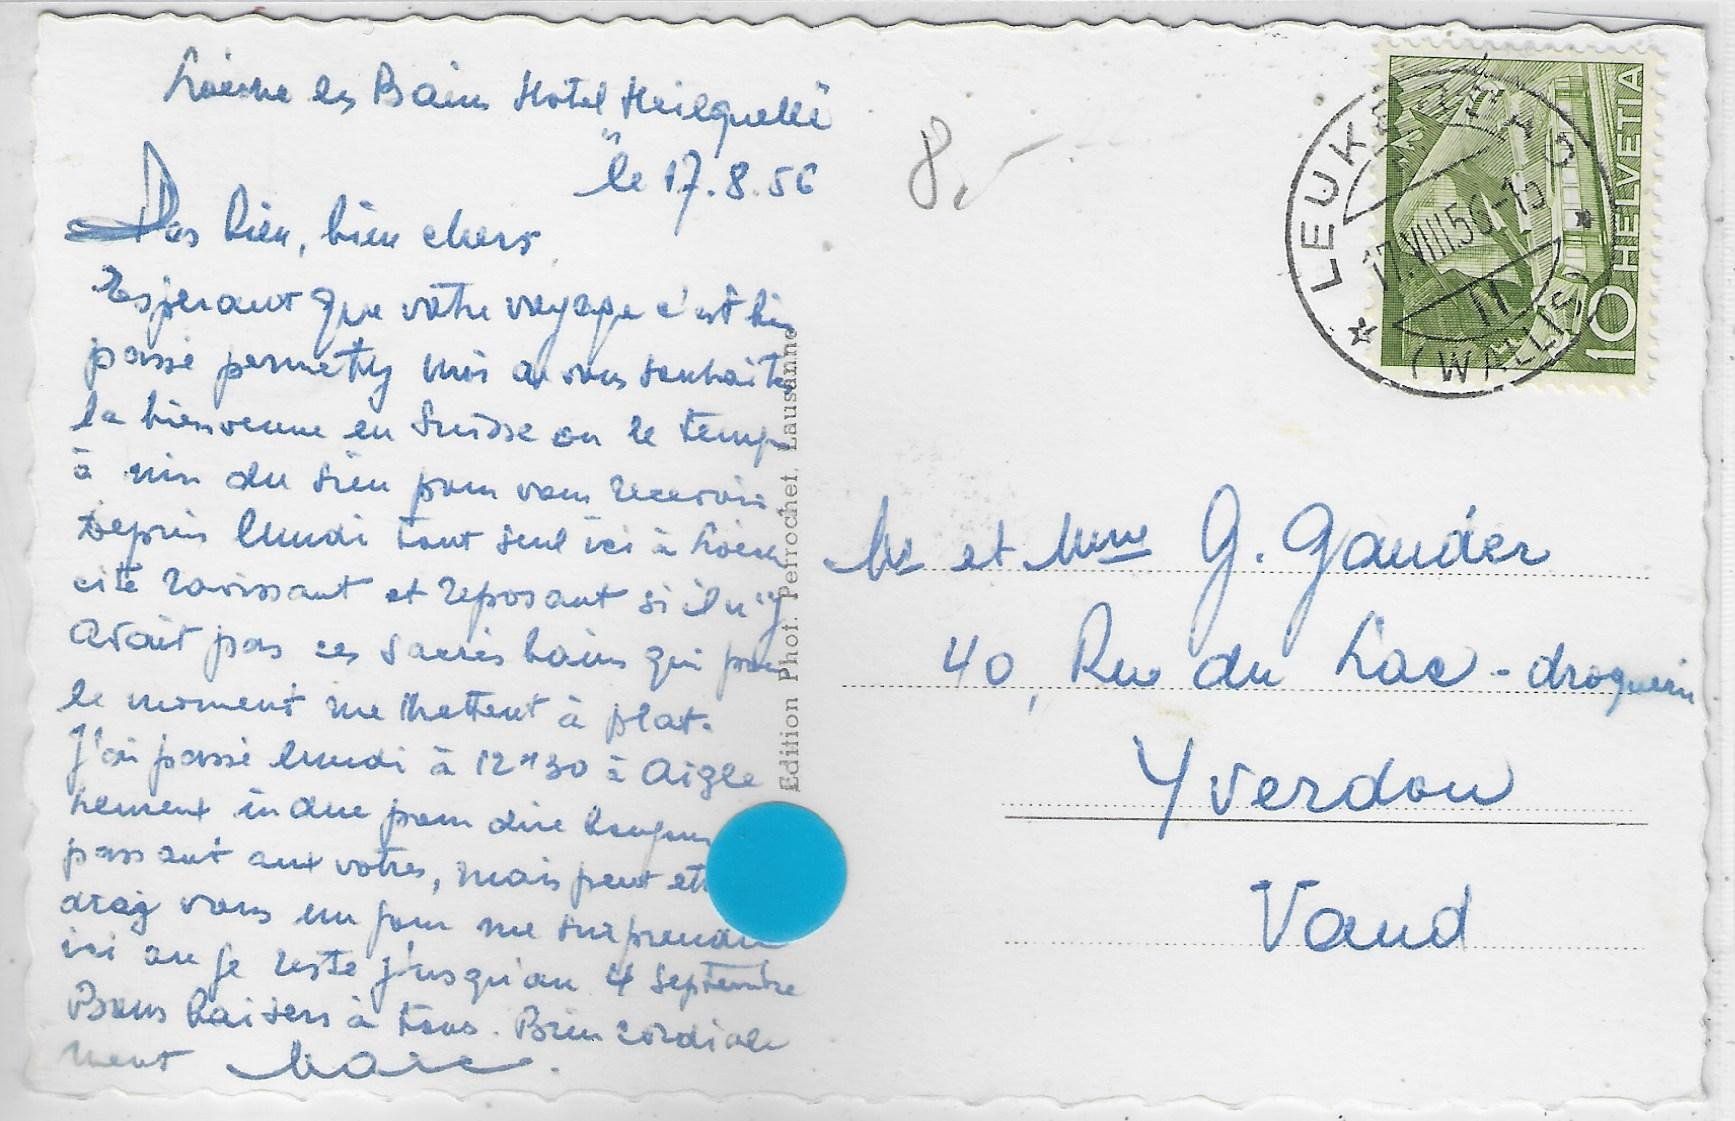 Loèche les Bains Hotel "Heilquelle"
le 17.8.56
Mes bien, bien chers
Esperant que votre voyage c'est bien
passé permettez moi de vous souhaiter
la bienvenue en Suisse ou le temps
à mis du sien pour vous recevoir
Depuis lundi tout seul ici à Loèche
cité ravissant et reposant si il n'y
avait pas ces sacrés bains qui pour
le moment me mettent à plat.
J'ai passé lundi à 12h30 à Aigle
heure indue pour dire bonjour
passant aux votres, mais peut etre
vous un jour me surprendre
ici ou je reste jusqu'au 4 Septembre
Bons baisers à tous. Bien cordiale
ment Marc.
Edition Phot. Perrochet, Lausanne
8.-
HELVETIA
10
LEUKERBAD
17.VIII.56-15
(WALLIS)
Mr et Mme G. Gander
40, Rue du Lac - droguerie
Yverdon
Vaud